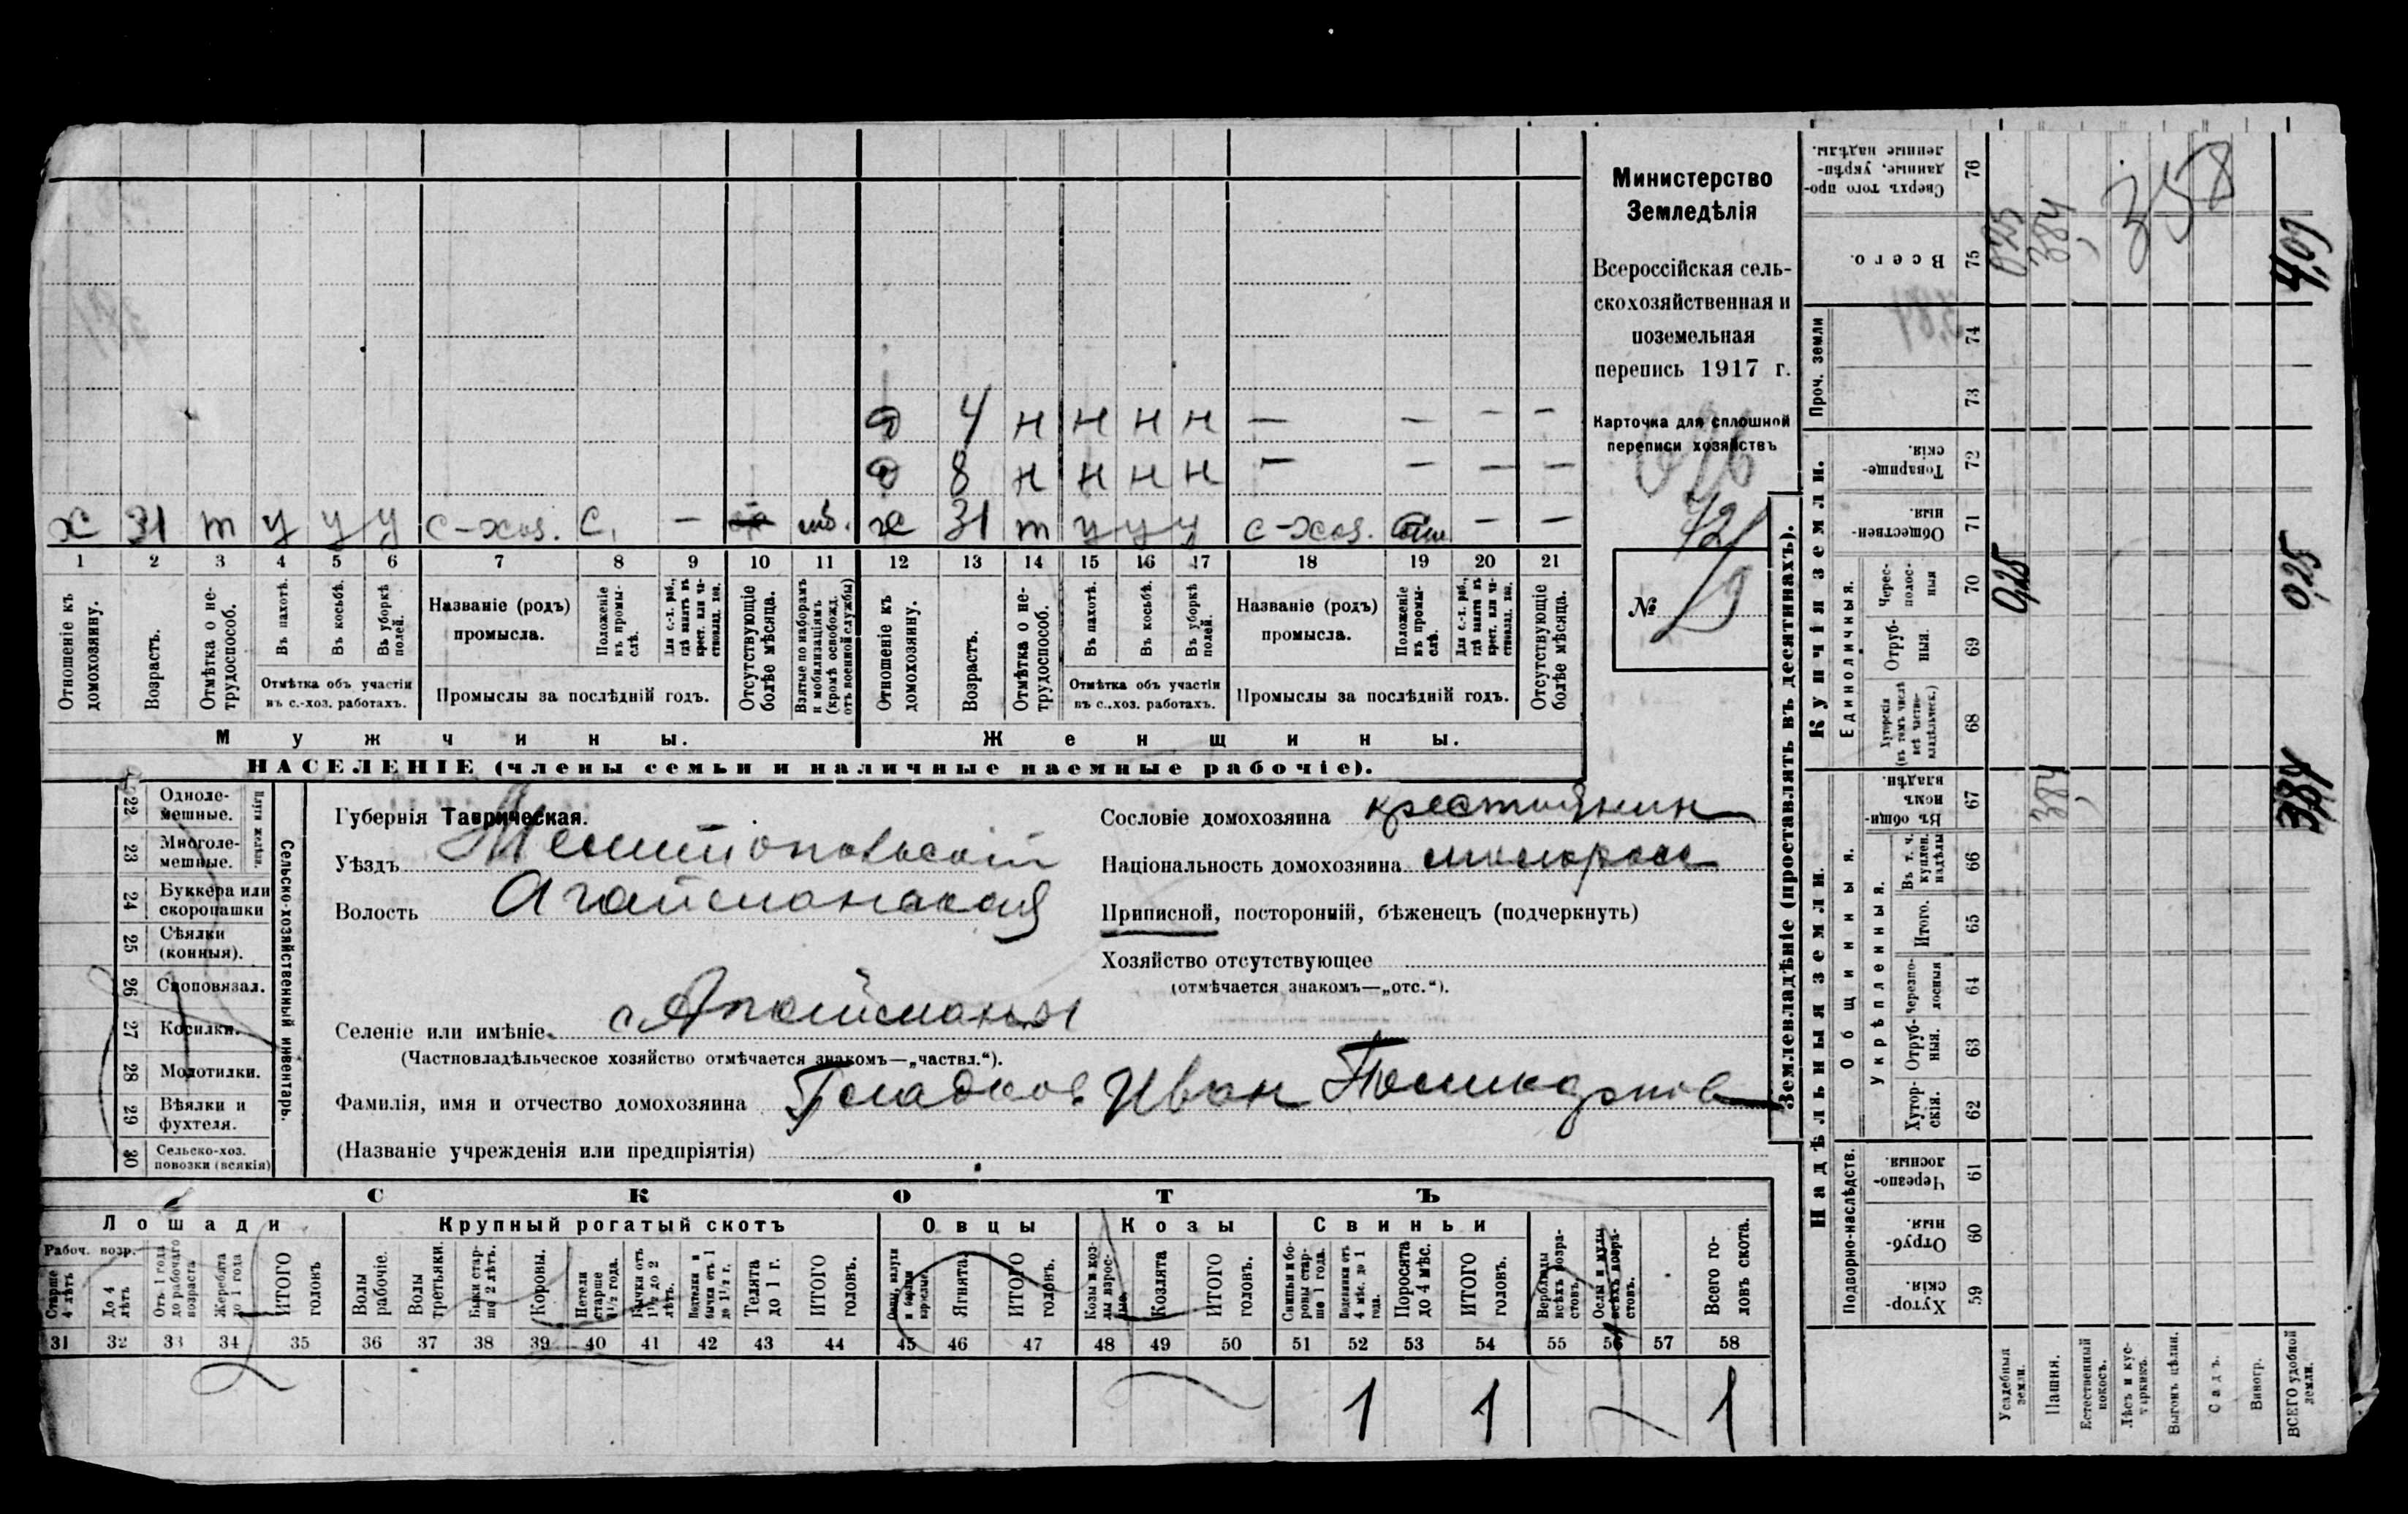 ф 4 н н н н — — — —
ф 8 н н н н — — — —
х 31 т у у у с-хоз. с. — моб. ж 31 т у у у с-хоз. — —
1 2 3 4 5 6 7 8 9 10 11 12 13 14 15 16 17 18 19 20 21
Отношеніе къ домохозяину.
Возрастъ.
Отмѣтка о не-
трудоспособ.
Въ пахотѣ.
Въ косьбѣ.
Въ уборкѣ
полей.
Отмѣтка объ участіи
въ с.-хоз. работахъ.
Названіе (родъ)
промысла.
Положеніе
въ промы-
слѣ.
Для с.-х. раб.,
гдѣ занятъ въ
крест. или ча-
стновлад. хоз.
Промыслы за послѣдній годъ.
Отсутствующіе
болѣе мѣсяца.
Взятые по наборамъ
и мобилизаціямъ
(кромѣ освобожд.
отъ военной службы)
Отношеніе къ
домохозяину.
Возрастъ.
Отмѣтка о не-
трудоспособ.
Въ пахотѣ.
Въ косьбѣ.
Въ уборкѣ
полей.
Отмѣтка объ участіи
въ с.-хоз. работахъ.
Названіе (родъ)
промысла.
Положеніе
въ промы-
слѣ.
Для с.-х. раб.,
гдѣ занята въ
крест. или ча-
стновлад. хоз.
Промыслы за послѣдній годъ.
Отсутствующіе
болѣе мѣсяца.
Мужчины.
Женщины.
НАСЕЛЕНІЕ (члены семьи и наличные наемные рабочіе).
Министерство
Земледѣлія
Всероссійская сель-
скохозяйственная и
поземельная
перепись 1917 г.
Карточка для сплошной
переписи хозяйствъ
721
№
22 Одноле-
мешные.
23 Многоле-
мешные.
Плуги желѣзн.
24 Буккера или
скоропашки
25 Сѣялки
(конныя).
26 Сноповязал.
27 Косилки.
28 Молотилки.
29 Вѣялки и
фухтеля.
30 Сельско-хоз.
повозки (всякія)
Сельско-хозяйственный инвентарь.
Губернія Таврическая.
Уѣздъ Мелитопольскій
Волость Агайманская
Селеніе или имѣніе с Агайманы
(Частновладѣльческое хозяйство отмѣчается знакомъ—„частвл.“).
Фамилія, имя и отчество домохозяина Гладков Иван Поликарпов
(Названіе учрежденія или предпріятія)
Сословіе домохозяина крестьянин
Національность домохозяина малоросс
Приписной, посторонній, бѣженецъ (подчеркнуть)
Хозяйство отсутствующее
(отмѣчается знакомъ—„отс.“).
СКОТЪ
Лошади.
Крупный рогатый скотъ
Овцы
Козы
Свиньи
Рабоч. возр.
Старше
4 лѣтъ
До 4
лѣтъ
Отъ 1 года
до рабочаго
возраста
Жеребята
до 1 года
ИТОГО
головъ
Волы
рабочіе.
Волы
третьяки.
Быки стар-
ше 2 лѣтъ.
Коровы.
Нетели
старше
1½ года.
Бычки отъ
1½ до 2
лѣтъ.
Подтелки и
бычки отъ 1
до 1½ г.
Телята
до 1 г.
ИТОГО
головъ.
Овцы, валухи
и бараны
взрослые.
Ягнята.
ИТОГО
головъ.
Козы и коз-
лы взрос-
лые.
Козлята
ИТОГО
головъ.
Свиньи и бо-
ровы стар-
ше 1 года.
Подсвинки отъ
4 мѣс. до 1
года.
Поросята
до 4 мѣс.
ИТОГО
головъ.
Верблюды
всѣхъ возра-
стовъ.
Ослы и мулы
всѣхъ возра-
стовъ.
Всего го-
ловъ скота.
31 32 33 34 35 36 37 38 39 40 41 42 43 44 45 46 47 48 49 50 51 52 53 54 55 56 57 58
1 1 1
Землевладѣніе (проставлять въ десятинахъ).
Надѣльныя земли.
Купчія земли.
Проч. земли
Подворно-наслѣдств.
Общинныя.
Укрѣпленныя.
Единоличныя.
Хутор-
скія. 59
Отруб-
ныя. 60
Черезпо-
лосныя. 61
Хутор-
скія. 62
Отруб-
ныя. 63
Черезпо-
лосныя 64
Итого. 65
Въ т. ч.
куплен.
надѣлы 66
Въ общин-
номъ
владѣн. 67
Хуторскія
(въ томъ числѣ
всѣ частно-
владѣльческ.) 68
Отруб-
ныя. 69
Черес-
полос-
ныя 70
Обществен-
ныя. 71
Товарище-
скія. 72
73
74
Всего. 75
Сверхъ того про-
данные, укрѣп-
ленные надѣлы. 76
Усадебныя
земли. 0,25 0,25
Пашня. 3,84 3,84
Естественный
покосъ.
Лѣсъ и кус-
тарникъ.
Выгонъ цѣлин.
Садъ.
Виногр.
ВСЕГО удобной
земли. 3,84 0,25 4,09
358
3,84